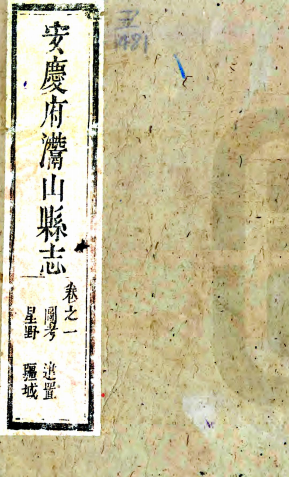 安慶府灊山縣志
卷之一
圖考 建置
星野 疆域